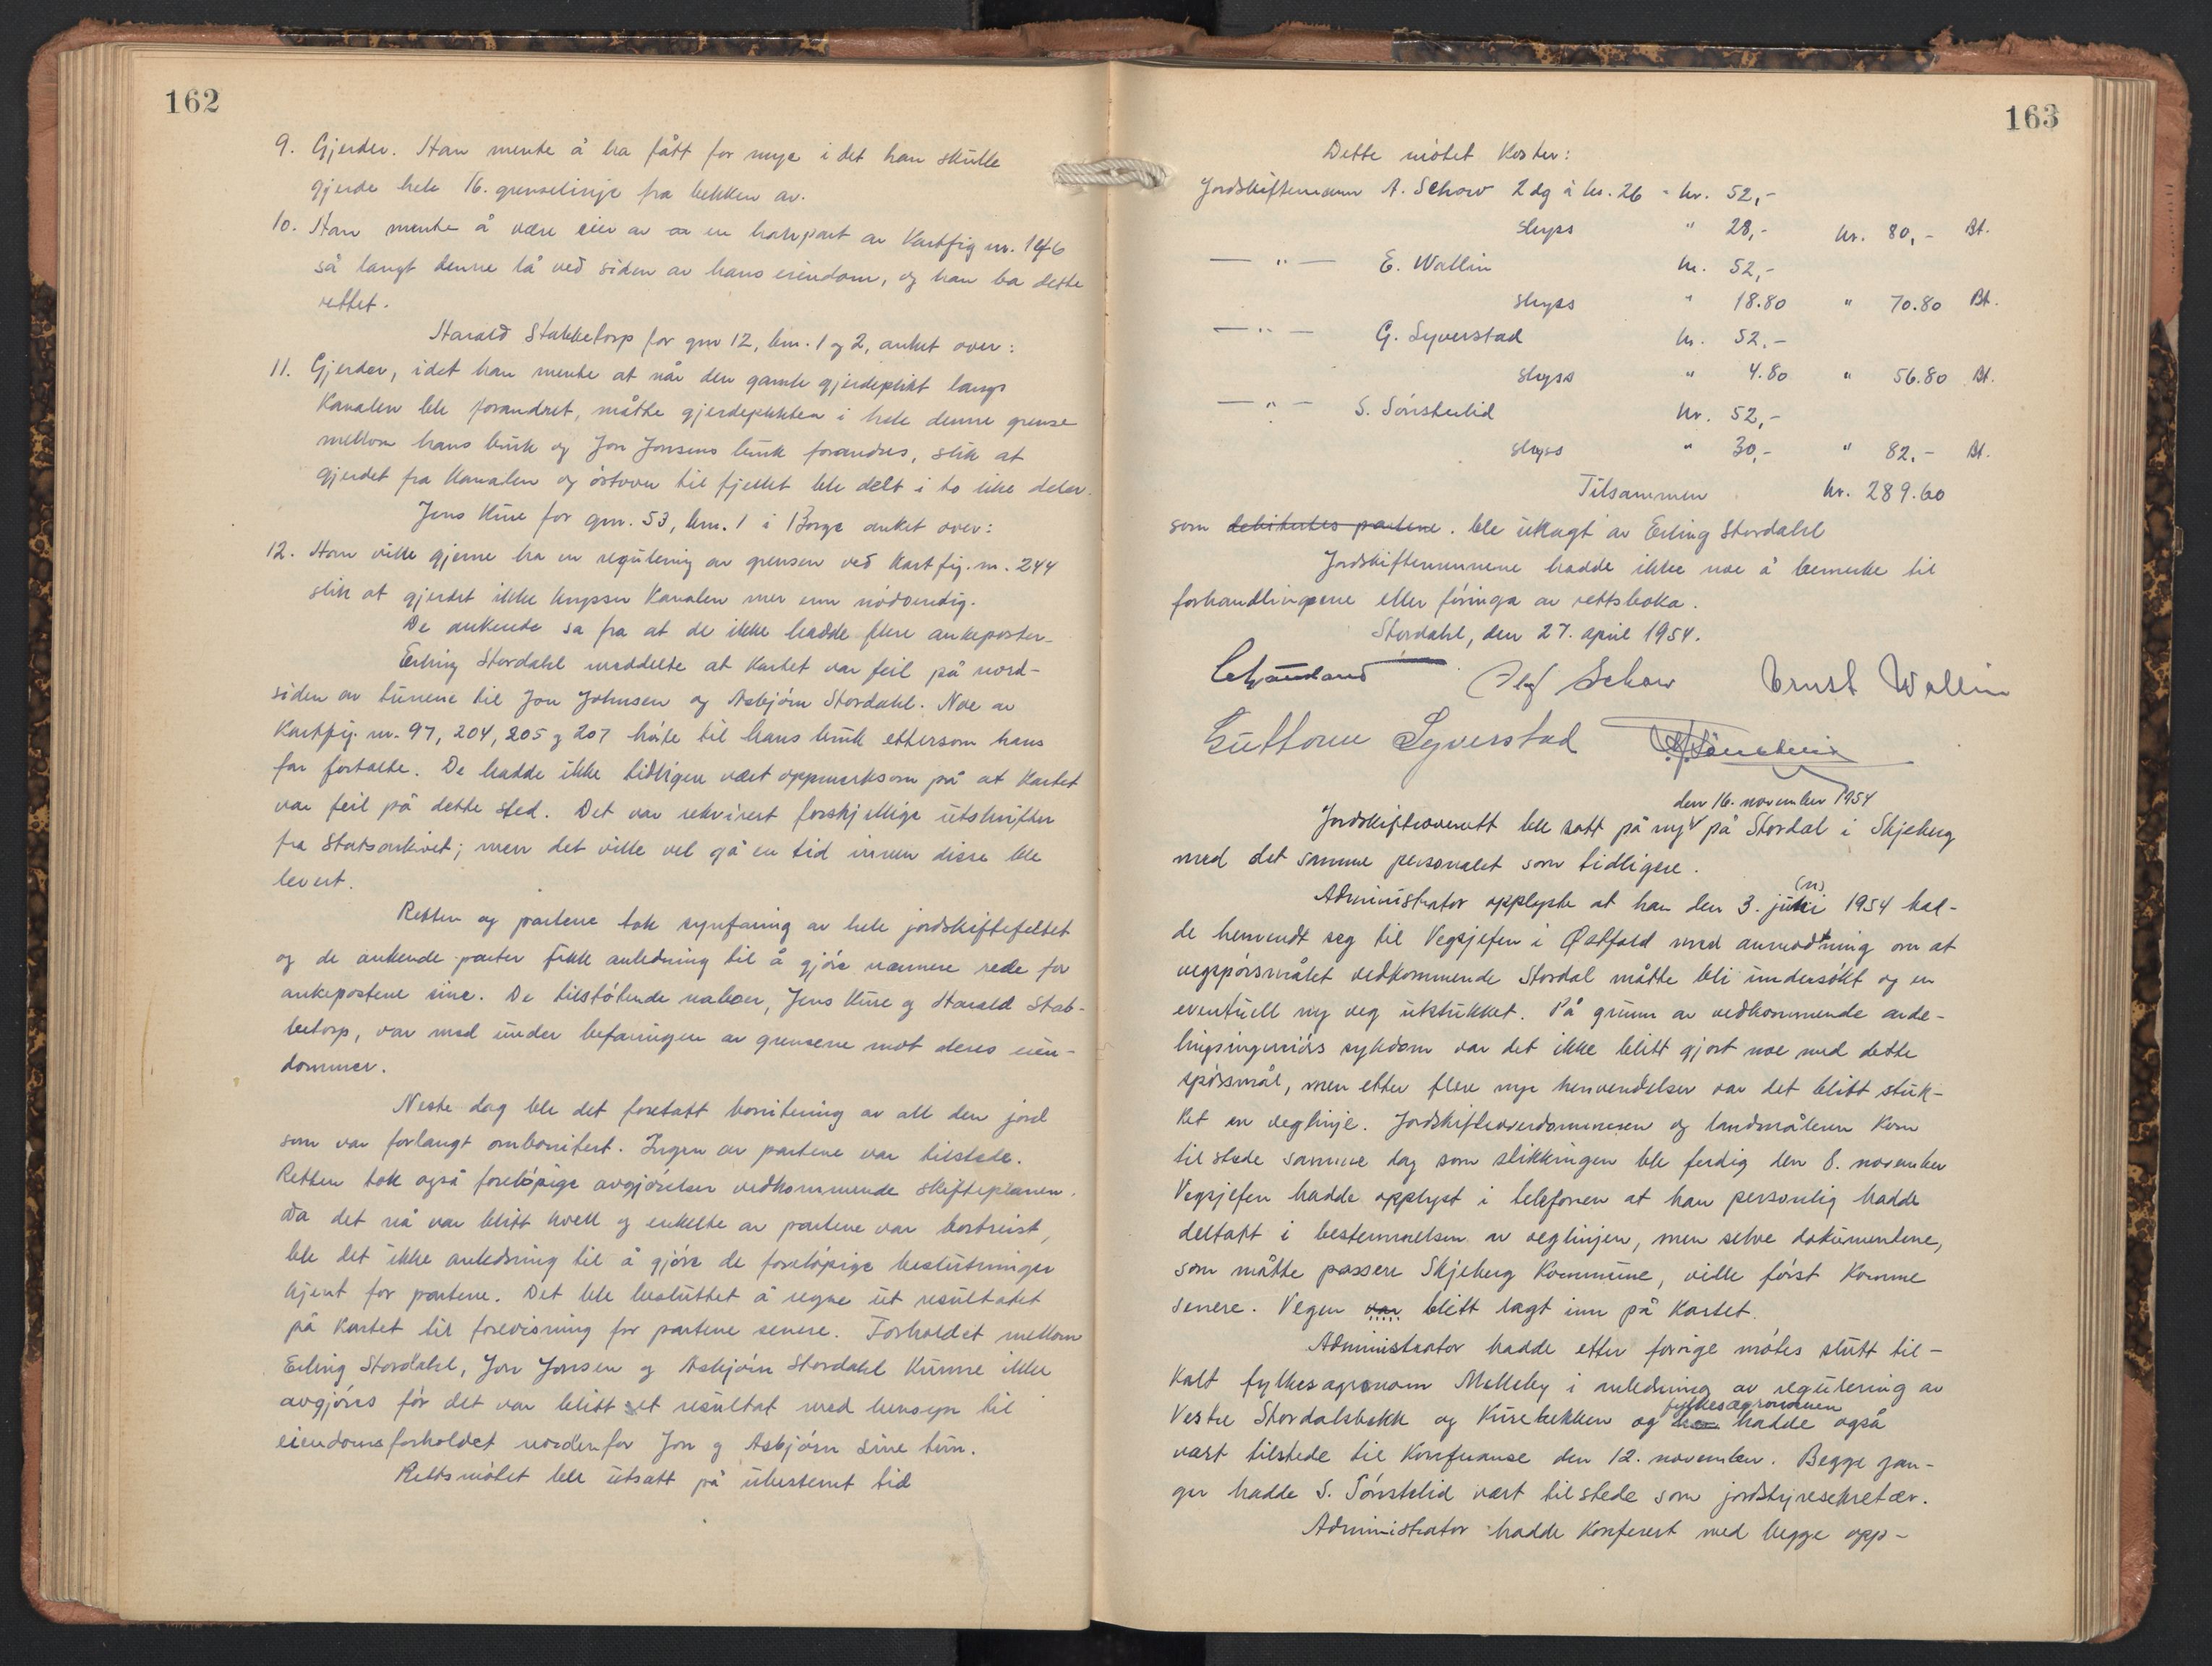 162
9. Gjerder. Han mente å ha fått for mye i det han skulle
gjerde hele 16. grenselinje fra bekken av.
10. Han mente å være eier av en halvpart av Kartfig nr. 146
så langt denne lå ved siden av hans eiendom, og han ba dette
rettet.
Harald Stabbetorp for gnr 12, bnr. 1 og 2, anket over:
11. Gjerder, idet han mente at når den gamle gjerdeplikt langs
Kanalen ble forandret, måtte gjerdeplikten i hele denne grense
mellom hans bruk og Jon Jonsens bruk forandres, slik at
gjerdet fra Kanalen og östover til fjellet ble delt i to like deler.
Jens Kure for gnr. 53, bnr. 1 i Borge anket over:
12. Han ville gjerne ha en regulering av grensen ved Kartfig. nr. 244
slik at gjerdet ikke krysser Kanalen mer enn nödvendig.
De ankende sa fra at de ikke hadde flere ankeposter.
Erling Stordahl meddelte at Kartet var feil på nord-
siden av tunene til Jon Johnsen og Asbjörn Stordahl. Noe av
Kartfig. nr. 97, 204, 205 og 207 hörte til hans bruk ettersom hans
far fortalte. De hadde ikke tidligere vært oppmerksom på at Kartet
var feil på dette sted. Det var rekvirert forskjellige utskrifter
fra Statsarkivet; men det ville vel gå en tid innen disse ble
levert.
Retten og partene tok synfaring av hele jordskiftefeltet
og de ankende parter fikk anledning til å gjöre nærmere rede for
ankepostene sine. De tilstötende naboer, Jens Kure og Harald Stab-
betorp, var med under befaringen av grensene mot deres eien-
dommer.
Neste dag ble det foretatt bonitering av all den jord
som var forlangt ombonitert. Ingen av partene var tilstede.
Retten tok også forelöpige avgjörelser vedkommende skifteplanen.
Da det nå var blitt kveld og enkelte av partene var bortreist,
ble det ikke anledning til å gjöre de forelöpige beslutninger
kjent for partene. Det ble besluttet å regne ut resultatet
på Kartet til forevisning for partene senere. Forholdet mellom
Erling Stordahl, Jon Jonsen og Asbjörn Stordahl kunne ikke
avgjöres för det var blitt et resultat med hensyn til
eiendomsforholdet nordenfor Jon og Asbjörn sine tun.
Rettsmötet ble utsatt på ubestemt tid
163
Dette mötet Koster:
Jordskiftemann A. Schow 2 dg à kr. 26 = kr. 52,-
skyss " 28,- kr. 80,- Bt.
— " — E. Wallin kr. 52,-
skyss " 18.80 " 70.80 Bt.
— " — G. Syverstad kr. 52.-
skyss " 4.80 " 56.80 Bt.
— " — S. Sönstelid kr. 52,-
skyss " 30,- " 82.- Bt.
Tilsammen kr. 289.60
som debiteres partene. ble utlagt av Erling Stordahl
Jordskiftemennene hadde ikke noe å bemerke til
forhandlingene eller föringa av rettsboka.
Stordahl, den 27. april 1954.
Schow Ernst Wallin
Guttorm Syverstad
den 16. november 1954
Jordskifteoverrett ble satt på ny på Stordal i Skjeberg
med det samme personalet som tidligere.
(n)
Administrator opplyste at han den 3. juni 1954 had-
de henvendt seg til Vegsjefen i Østfold med anmodning om at
vegspörsmålet vedkommende Stordal måtte bli undersökt og en
eventuell ny veg utstukket. På grunn av vedkommende avde-
lingsingeniörs sykdom var det ikke blitt gjort noe med dette
spörsmål, men etter flere nye henvendelser var det blitt stuk-
ket en veglinje. Jordskifteoverdommeren og landmåleren kom
til stede samme dag som stikkingen ble ferdig den 8. november
Vegsjefen hadde opplyst i telefonen at han personlig hadde
deltatt i bestemmelsen av veglinjen, men selve dokumentene,
som måtte passere Skjeberg Kommune, ville först Komme
senere. Vegen var blitt lagt inn på Kartet.
Administrator hadde etter forrige mötes slutt til-
kalt fylkesagronom Melleby i anledning av regulering av
fylkesagronomen
Vestre Stordalsbekk og Kurebekken og han hadde også
vært tilstede til Konferanse den 12. november. Begge gan-
ger hadde S. Sönstelid vært til stede som jordstyresekretær.
Administrator hadde Konferert med begge opp-